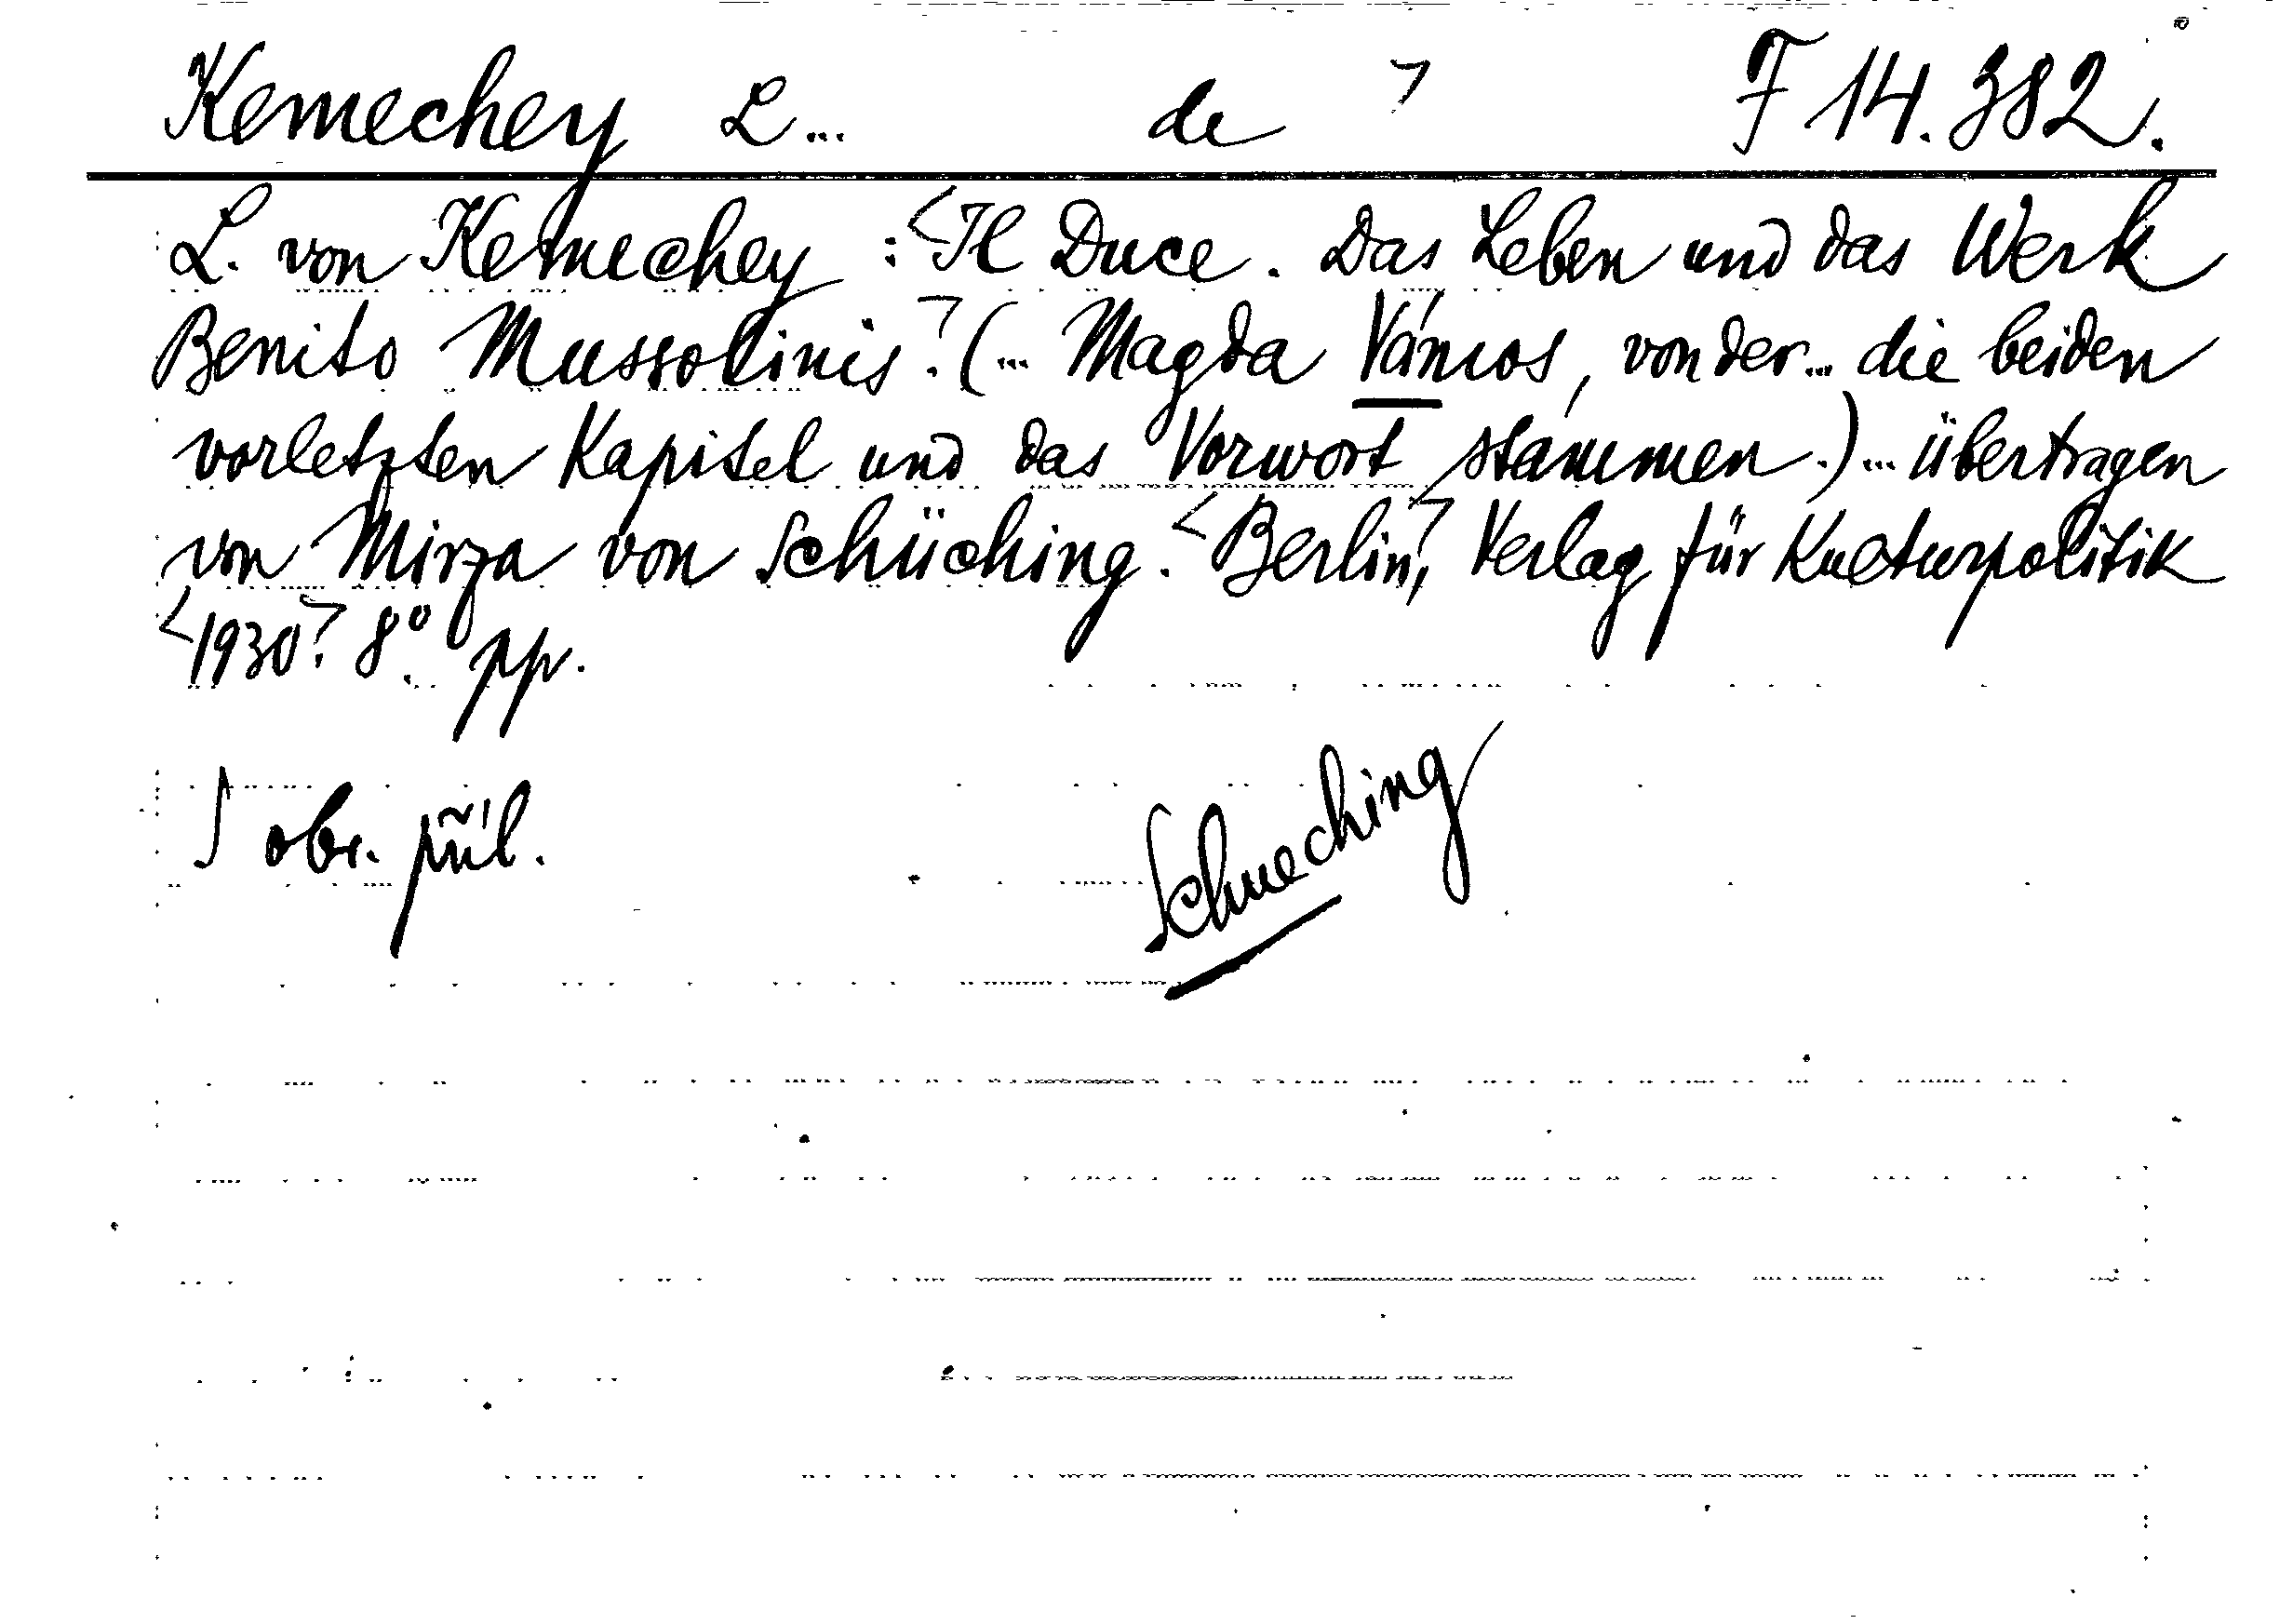 Kemechey L... de > F 14.382.
L. von Kemechey : <Il Duce. Das Leben und das Werk
Benito Mussolinis>. (... Magda Vámos, von der... die beiden
vorletzten Kapitel und das Vorwort stammen.)... übertragen
von Mirza von Schüching. <Berlin>, Verlag für Kulturpolitik
<1930>. 8°. pp.
obr. příl.
Schueching